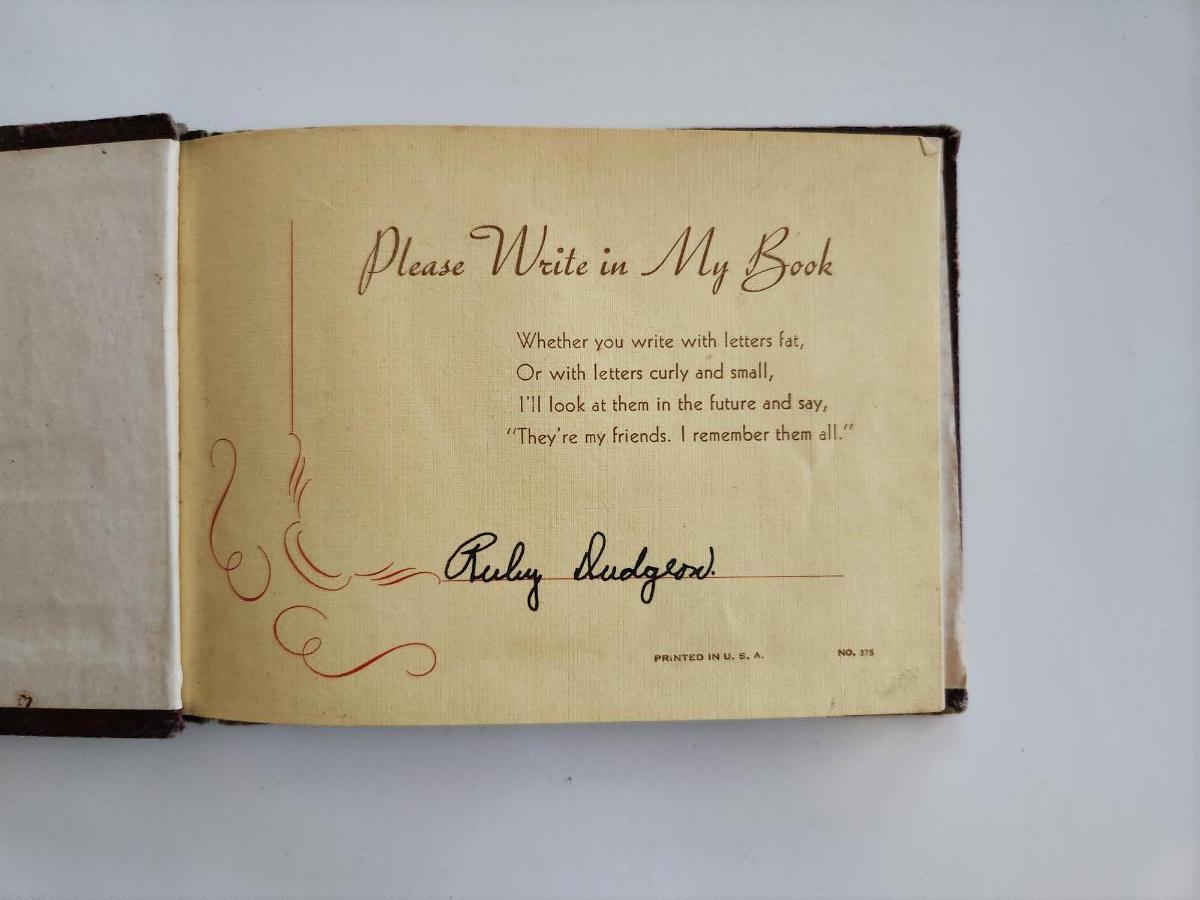 Please Write in My Book
Whether you write with letters fat,
Or with letters curly and small,
I'll look at them in the future and say,
"They're my friends. I remember them all."
Ruby Dudgeon.
PRINTED IN U. S. A.
NO. 375